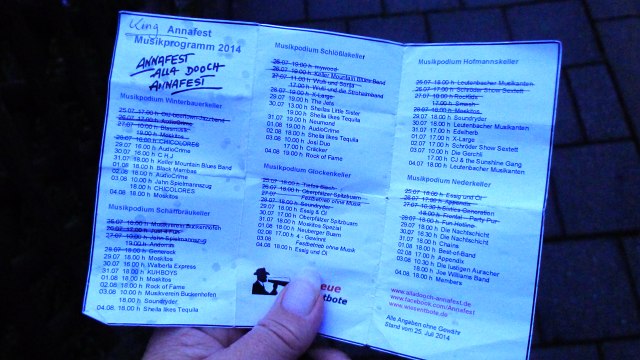 King Annafest
Musikprogramm 2014
ANNAFEST
ALLA DOOCH
ANNAFEST!
Musikpodium Winterbauerkeller
28.07 19.00 h Moskitos
29.07 18.00 h CHICOLORES
29.07 18.00 h AudioCrime
30.07 16.00 h C H J
31.07 18.00 h Keller Mountain Blues Band
01.08 18.00 h Black Mambas
02.08 18.00 h AudioCrime
03.08 10.00 h Jahn Spielmannszug
18.00 h CHICOLORES
04.08 18.00 h Moskitos
Musikpodium Schaffbräukeller
29.07 18.00 h Gerenack
30.07 16.00 h Walberla Express
31.07 18.00 h KUHBOYS
01.08 18.00 h Moskitos
02.08 18.00 h Rock of Fame
03.08 10.00 h Musikverein Buckenhofen
18.00 h Soundryder
04.08 18.00 h Sheila likes Tequila
Musikpodium Schlößlakeller
26.07 18.00 h Keller Mountain Blues Band
28.07 18.00 h X-Large
29.07 18.00 h The Jets
30.07 13.00 h Sheilas Little Sister
18.00 h Sheila likes Tequila
31.07 18.00 h Neumond
01.08 18.00 h AudioCrime
02.08 18.00 h Sheila likes Tequila
03.08 12.00 h Josi Duo
17.00 h Cräcker
04.08 19.00 h Rock of Fame
Musikpodium Glockenkeller
26.07 18.00 h Oberpfälzer Spitzbuam
Festbetrieb ohne Musik
28.07 18.00 h Soundryder
29.07 18.00 h Essig & Öl
30.07 17.00 h Oberpfälzer Spitzbuam
31.07 18.00 h Moskitos Spezial
01.08 18.00 h Neuberger Buam
02.08 17.00 h 4 - Gewinnt
03.08 Festbetrieb ohne Musik
04.08 18.00 h Essig und Öl
Musikpodium Hofmannskeller
25.07 18.00 h Leutenbacher Musikanten
26.07 17.00 h Schräder Show Sextett
17.00 h Smash
28.07 18.00 h Moskitos
29.07 18.00 h Soundryder
30.07 15.00 h Leutenbacher Musikanten
31.07 18.00 h Edelherb
01.08 17.00 h X-Large
02.08 17.00 h Schräder Show Sextett
03.08 10.00 h Die Gerschli
17.00 h CJ & the Sunshine Gang
04.08 18.00 h Leutenbacher Musikanten
Musikpodium Nederkeller
25.07 18.00 h Essig und Öl
26.07 17.00 h Appendix
28.07 18.00 h Fun-Hotline
29.07 18.00 h Die Nachtschicht
30.07 18.00 h Die Nachtschicht
31.07 18.00 h Chains
01.08 18.00 h Best-of-Band
02.08 17.00 h Appendix
03.08 10.30 h Die lustigen Auracher
18.00 h Joe Williams Band
04.08 18.00 h Members
www.alladooch-annafest.de
www.facebook.com/Annafest
www.wiesentbote.de
Alle Angaben ohne Gewähr
Stand vom 25. Juli 2014